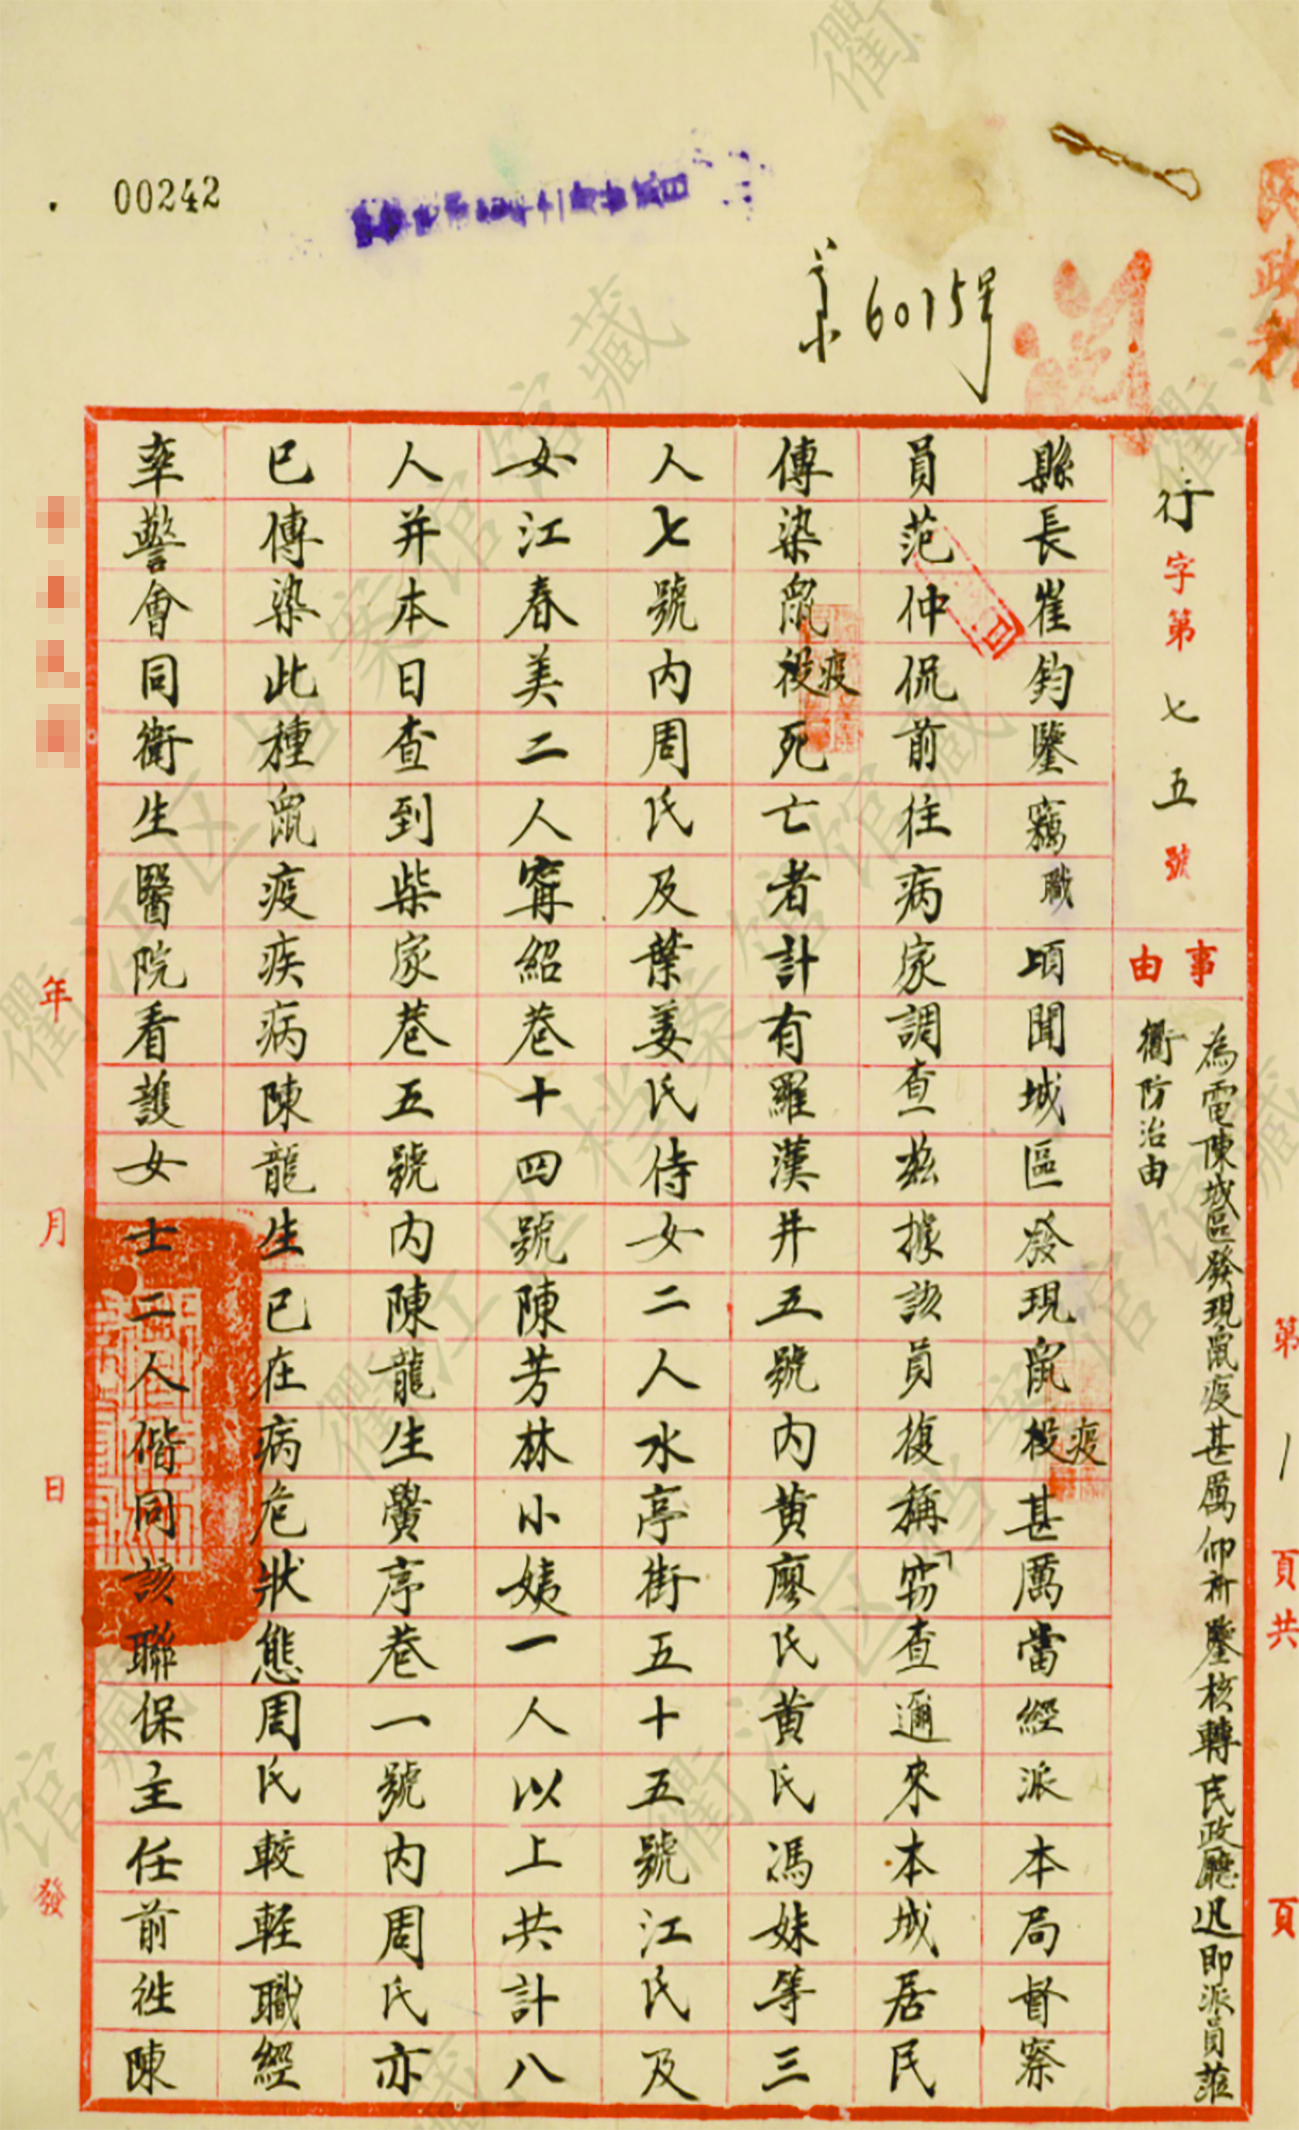 00242
第6015號
閱
民政科
行字第七五號
事由
為電陳城區發現鼠疫甚厲仰祈鑒核轉民政廳迅即派員蒞
衢防治由
縣長崔鈞鑒竊職頃聞城區發現鼠疫甚厲當經派本局督察
員范仲侃前往病家調查茲據該員復稱「竊查邇來本城居民
傳染鼠疫死亡者計有羅漢井五號內黃廖氏黃氏馮妹等三
人七號內周氏及葉姜氏侍女二人水亭街五十五號江氏及
女江春美二人寗紹巷十四號陳芳林小姨一人以上共計八
人并本日查到柴家巷五號內陳龍生黌序巷一號內周氏亦
已傳染此種鼠疫疾病陳龍生已在病危狀態周氏較輕職經
率警會同衛生醫院看護女士二人偕同該聯保主任前往陳
年月日發
第1頁共頁
衢江区档案馆馆藏